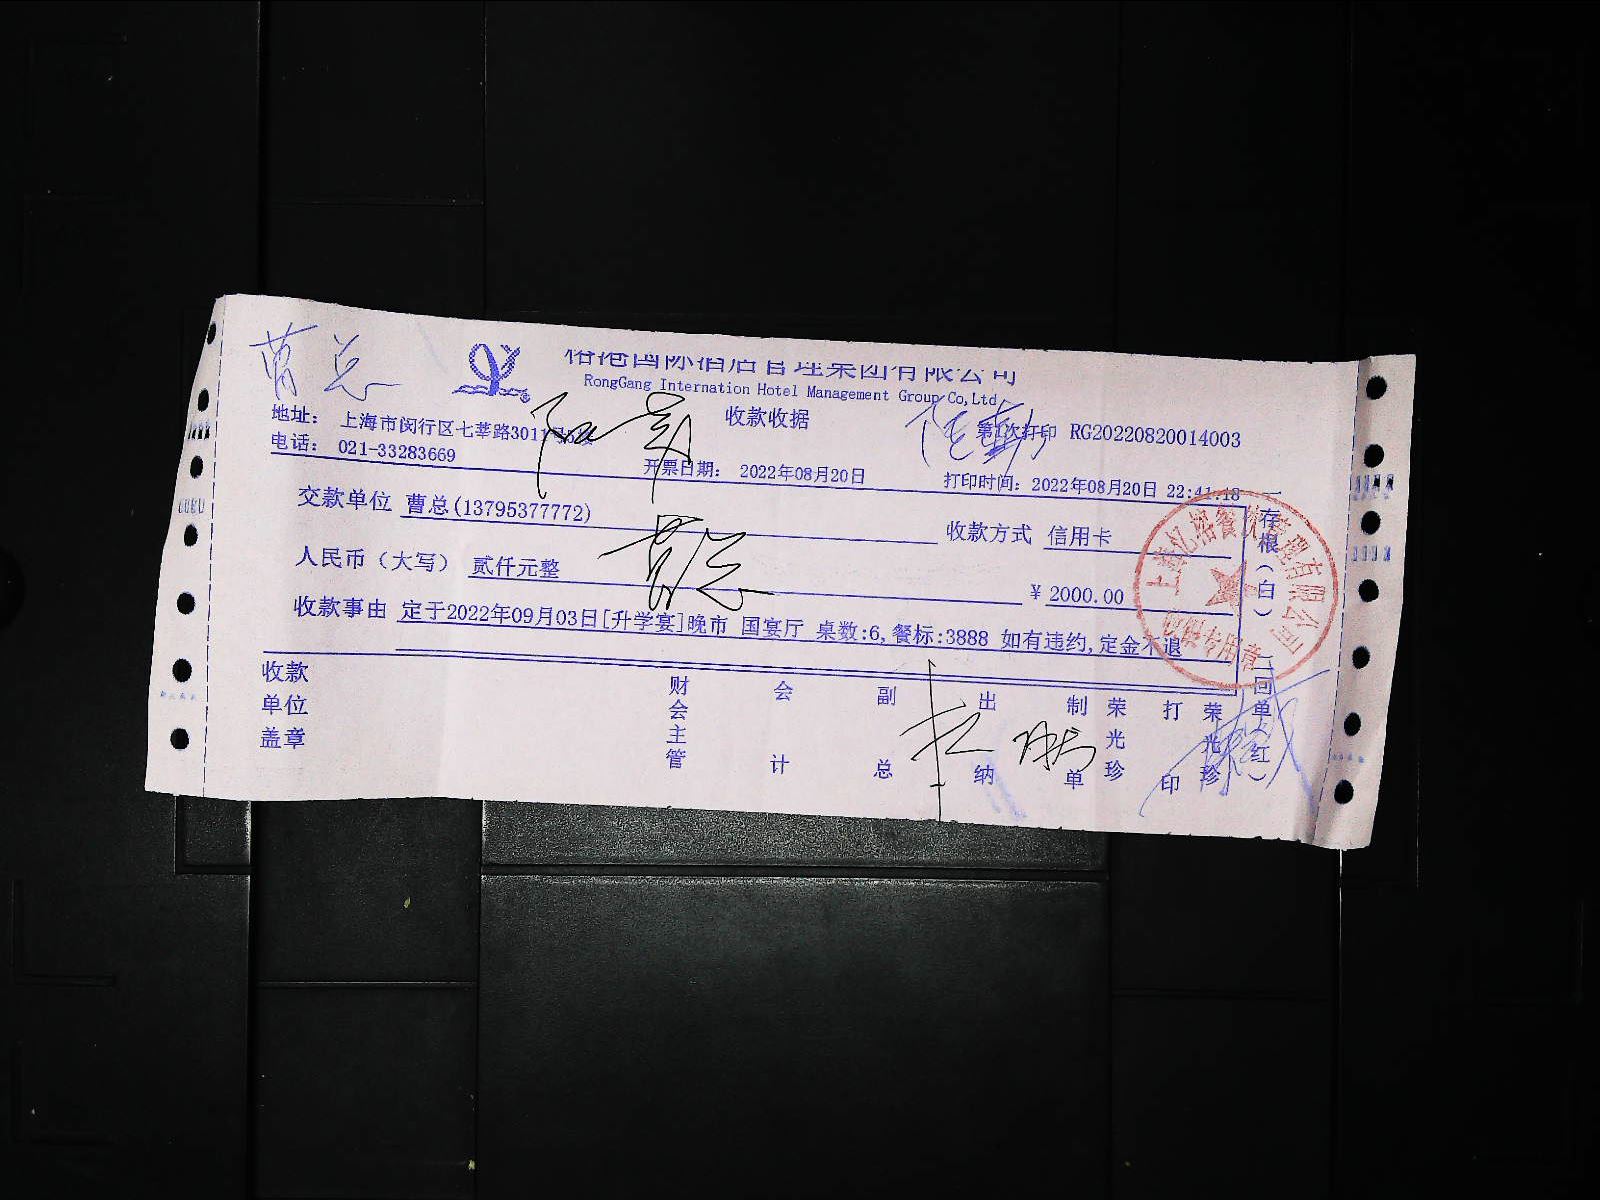 曹总
榕港国际酒店管理集团有限公司
RongGang Internation Hotel Management Group Co,Ltd
收款收据
地址： 上海市闵行区七莘路3011号5楼
第1次打印 RG20220820014003
电话： 021-33283669
开票日期： 2022年08月20日
打印时间：2022年08月20日 22:41:18
交款单位 曹总(13795377772)
收款方式 信用卡
人民币（大写） 贰仟元整
曹总
￥2000.00
收款事由 定于2022年09月03日[升学宴]晚市 国宴厅 桌数:6,餐标:3888 如有违约,定金不退
收款单位盖章
财会主管
会计
副总
出纳
制单
荣光珍
打印
荣光珍
一存根（白）
二回单（红）
上海忆榕餐饮管理有限公司
收银专用章